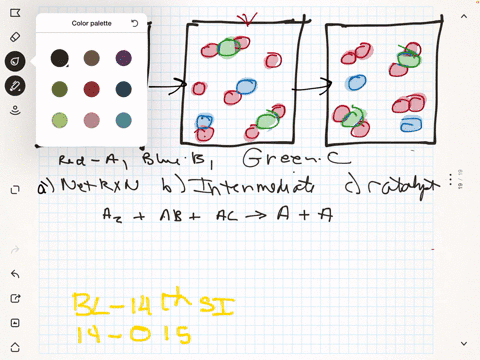 Color palette
Red-A, Blue-B, Green-C
a) Net RXN b) Intermediate c) Catalyst
A2 + AB + AC → A + A
BL-14th SI
14-015
19 / 19